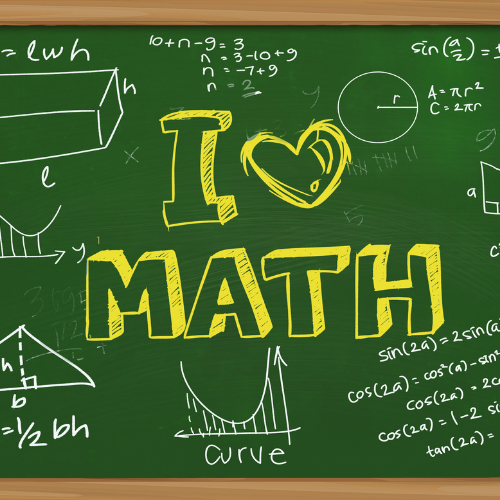 = lwh
h
l
10+n-9=3
n = 3-10+9
n = -7+9
n = 2
r
A = πr²
C = 2πr
sin(a/2) = ±
a
I ♥
MATH
y
x
y'
5
h
b
= 1/2 bh
curve
sin(2a) = 2sin(a
cos(2a) = cos²(a) - sin²
cos(2a) = 2co
cos(2a) = 1-2 si
tan(2a) =